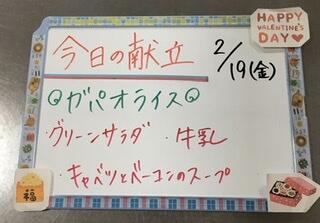 HAPPY
VALENTINE'S
DAY
今日の献立 2/19(金)
◎ガパオライス◎
・グリーンサラダ ・牛乳
・キャベツとベーコンのスープ
福